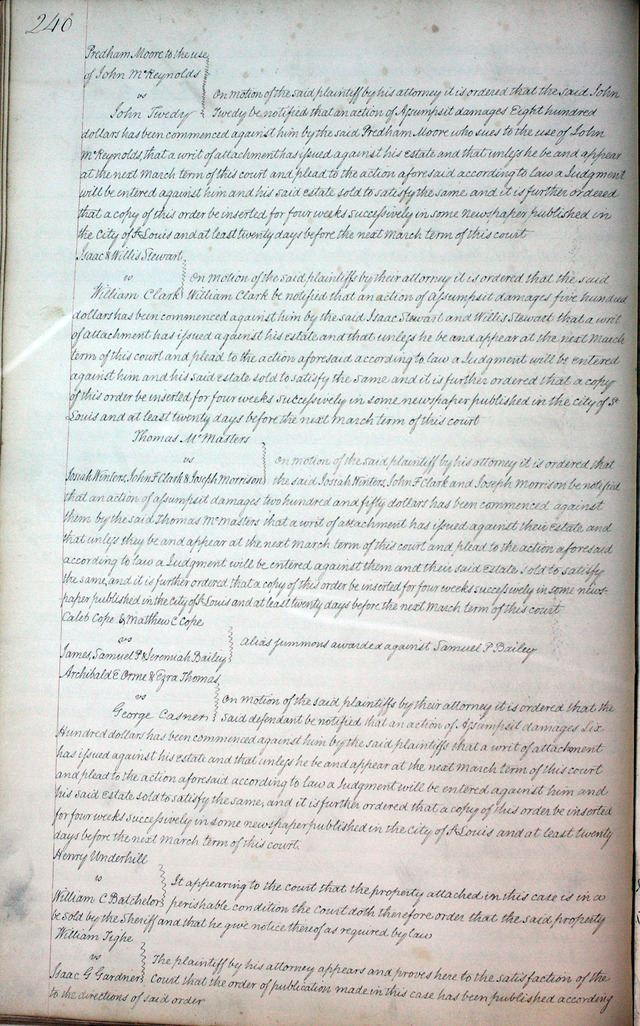 240
Predham Moore to the use
of John McReynolds
vs On motion of the said plaintiff by his attorney it is ordered that the said John
John Twedy Twedy be notified that an action of Assumpsit damages Eight hundred
dollars has been commenced against him by the said Predham Moore who sues to the use of John
McReynolds, that a writ of attachment has issued against his estate and that unless he be and appear
at the next March term of this court and plead to the action aforesaid according to law a Judgment
will be entered against him and his said estate sold to satisfy the same, and it is further ordered
that a copy of this order be inserted for four weeks successively in some newspaper published in
the City of St Louis and at least twenty days before the next March term of this court
Isaac & Willis Stewart
vs On motion of the said plaintiffs by their attorney it is ordered that the said
William Clark William Clark be notified that an action of Assumpsit damages five hundred
dollars has been commenced against him by the said Isaac Stewart and Willis Stewart that a writ
of attachment has issued against his estate and that unless he be and appear at the next March
term of this court and plead to the action aforesaid according to law a Judgment will be entered
against him and his said estate sold to satisfy the same and it is further ordered that a copy
of this order be inserted for four weeks successively in some newspaper published in the city of St
Louis and at least twenty days before the next March term of this court
Thomas McMasters
vs On motion of the said plaintiff by his attorney it is ordered that
Josiah Winters, John F Clark & Joseph Morrison the said Josiah Winters, John F Clark and Joseph Morrison be notified
that an action of assumpsit damages two hundred and fifty dollars has been commenced against
them by the said Thomas McMasters that a writ of attachment has issued against their estate and
that unless they be and appear at the next March term of this court and plead to the action aforesaid
according to law a Judgment will be entered against them and their said estate sold to satisfy
the same, and it is further ordered that a copy of this order be inserted for four weeks successively in some news-
paper published in the City of St Louis and at least twenty days before the next March term of this court
Caleb Cope & Matthew C Cope
vs alias summons awarded against Samuel P. Bailey
James, Samuel P & Jeremiah Bailey
Archibald E Orme & Ezra Thomas
vs On motion of the said plaintiffs by their attorney it is ordered that the
George Casner said defendant be notified that an action of Assumpsit damages Six
Hundred dollars has been commenced against him by the said plaintiffs that a writ of attachment
has issued against his estate and that unless he be and appear at the next March term of this court
and plead to the action aforesaid according to law a Judgment will be entered against him and
his said estate sold to satisfy the same, and it is further ordered that a copy of this order be inserted
for four weeks successively in some newspaper published in the City of St Louis and at least twenty
days before the next March term of this court.
Henry Underhill
vs It appearing to the court that the property attached in this case is in a
William C Batchelor perishable condition the court doth therefore order that the said property
be sold by the Sheriff and that he give notice thereof as required by law
William Tighe
vs The plaintiff by his attorney appears and proves here to the satisfaction of the
Isaac G Gardner Court that the order of publication made in this case has been published according
to the directions of said order